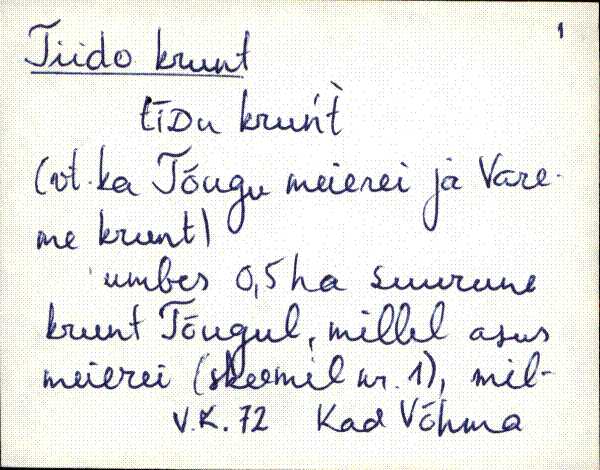 1
Tiido krunt
tīDu kruńt̀
(vt. ka Tõugu meierei ja Vare-
me krunt)
umbes 0,5 ha suurune
krunt Tõugul, millel asus
meierei (skeemil nr. 1), mil-
V.K. 72 Kad Võhma